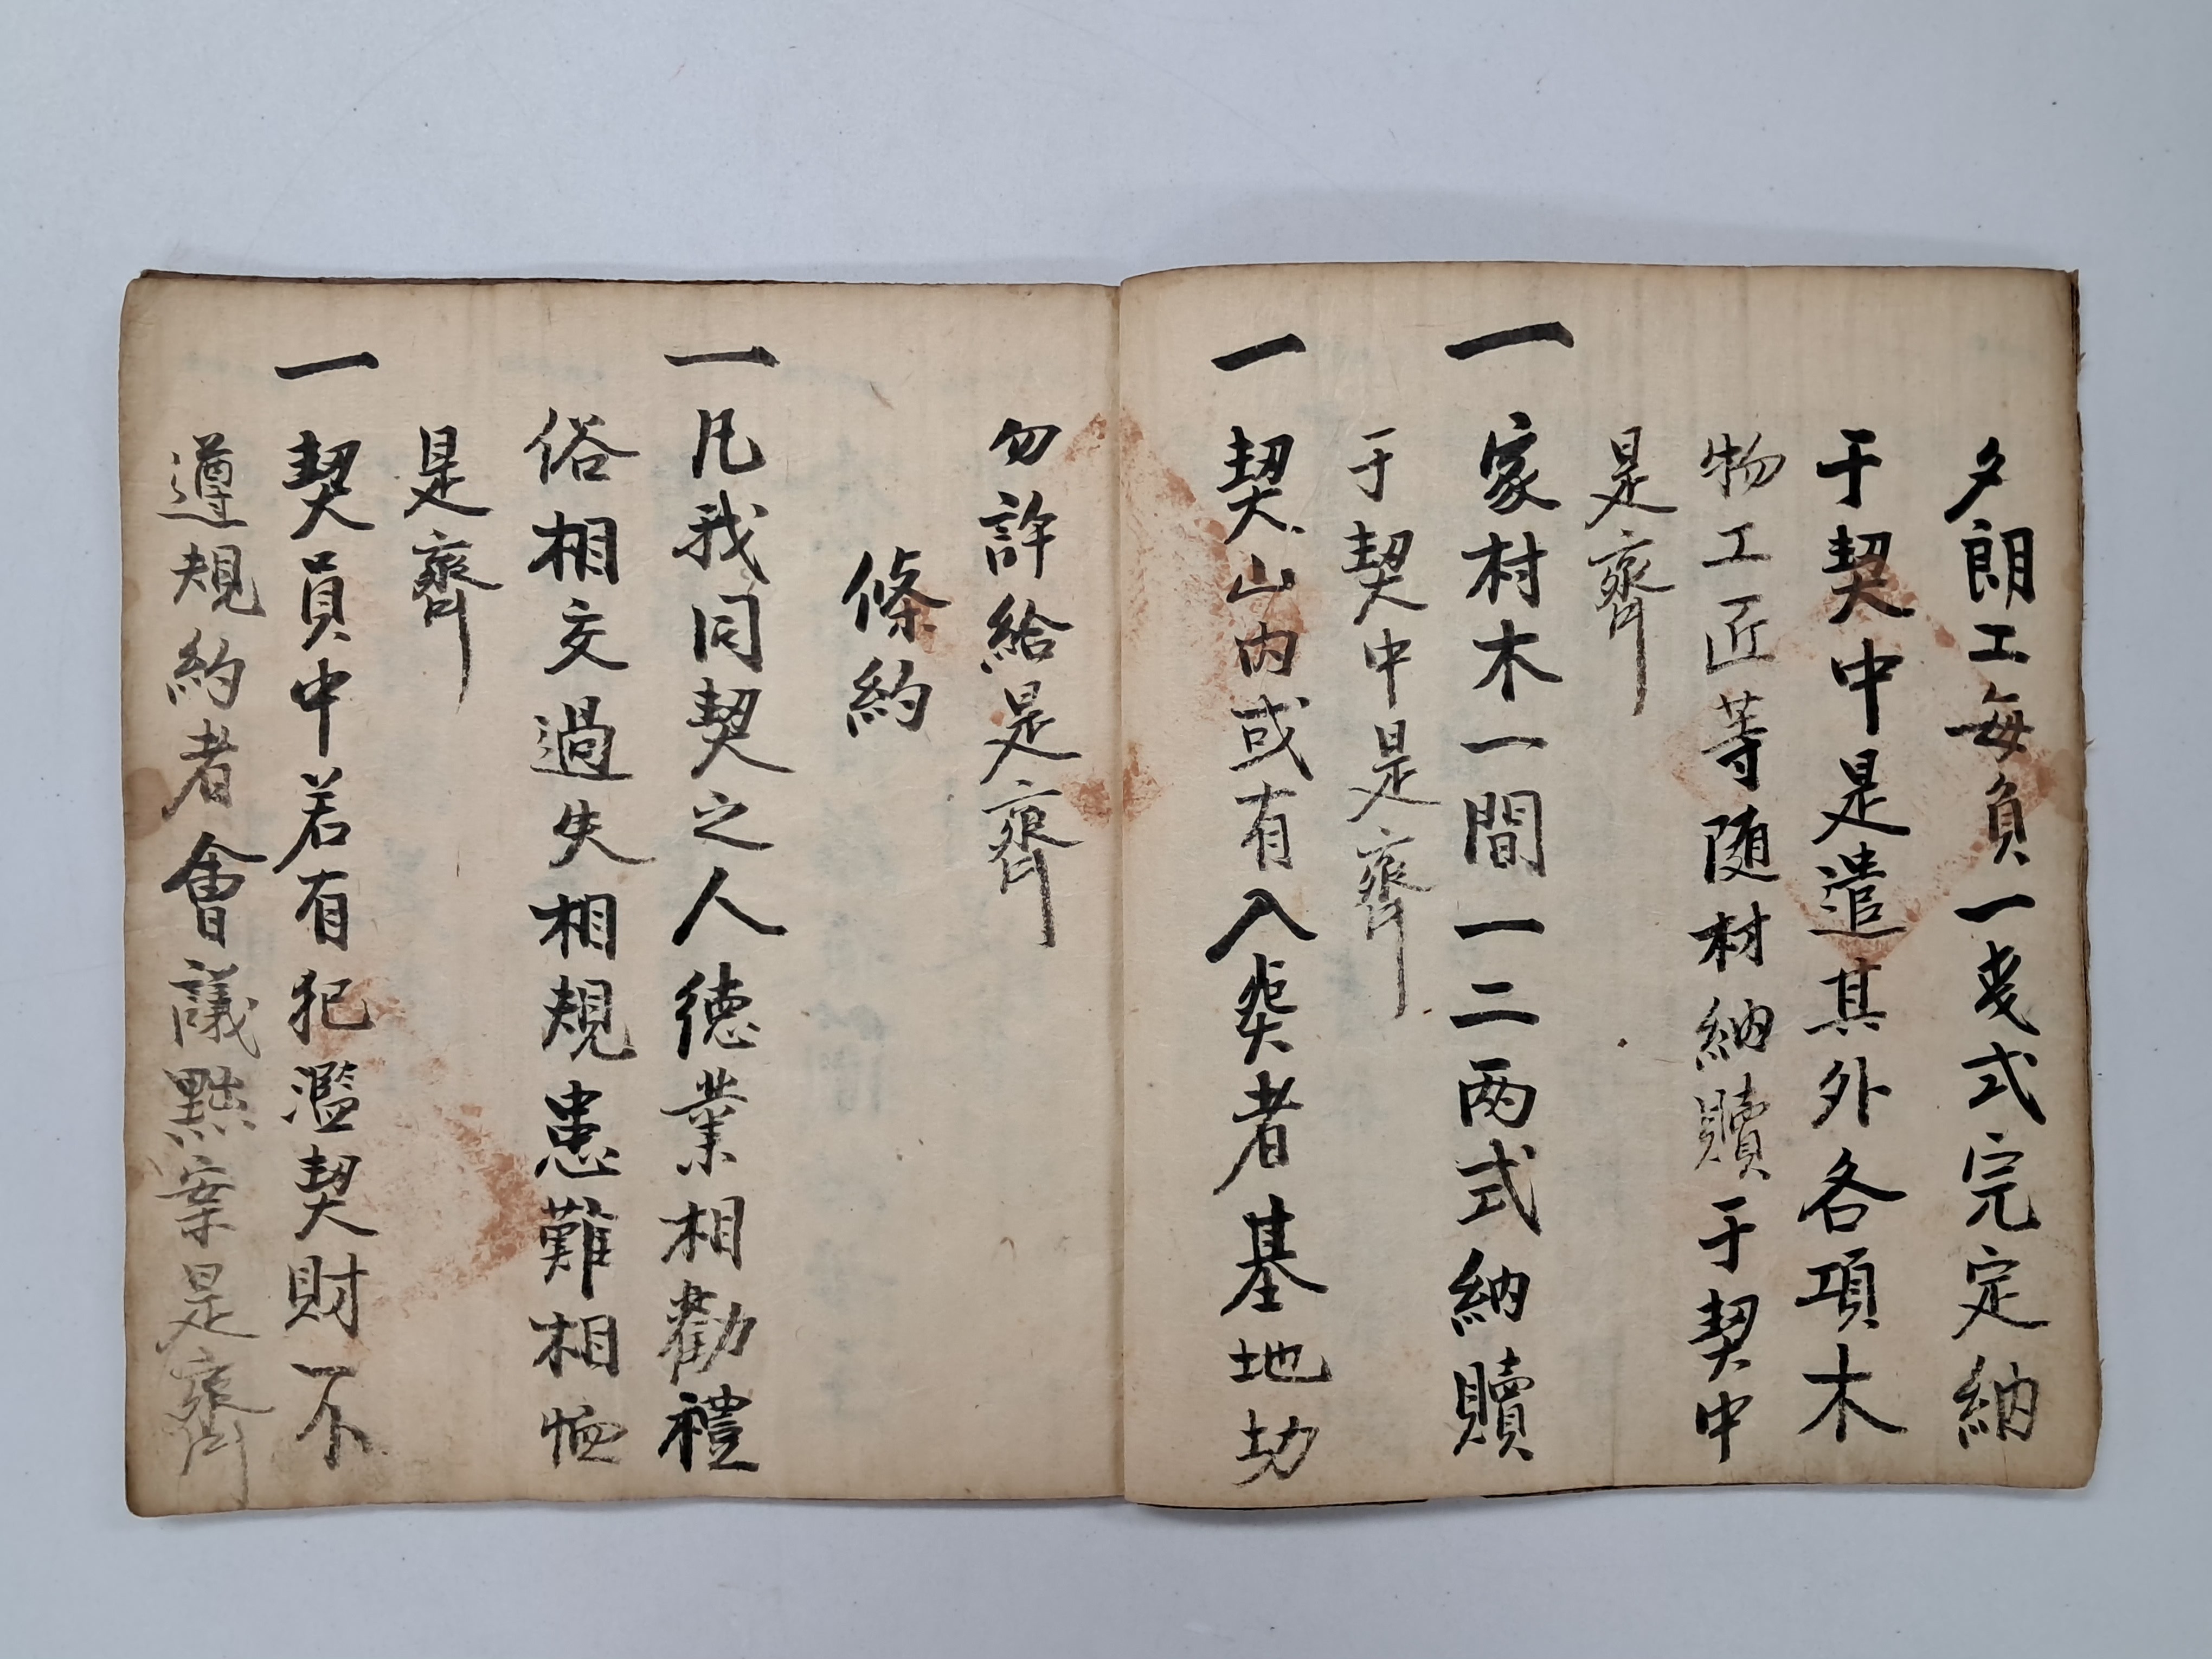 夕朗工每負一戔式完定納
于契中是遣其外各項木
物工匠等随材納贖于契中
是齊
一家材木一間一二两式納贖
于契中是齊
一契山内或有入葬者基地切
勿許給是齊
條約
一凡我同契之人德業相勸禮
俗相交過失相規患難相恤
是齊
一契員中若有犯濫契財不
遵規約者會議黜案是齊